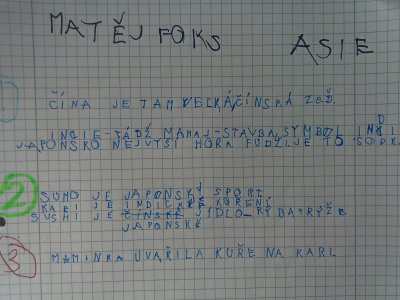 MATĚJ FOKS ASIE
1
ČÍNA JE TAM VELKÁ, ČÍNSKÁ ZEĎ.
INDIE-TÁDŽ MAHAJ-STAVBA, SYMBOL INDI
JAPONSKO NEJVYŠÍ HORA FUDŽI JE TO SOPK
2
SUMO JE JAPONSKÝ SPORT.
KARI JE INDICKÉ KOŘENÍ
SUSHI JE ČÍNSKÉ JÍDLO-RYBA+RÝŽE
JAPONSKÉ
3
MAMINKA UVAŘILA KUŘE NA KARI.